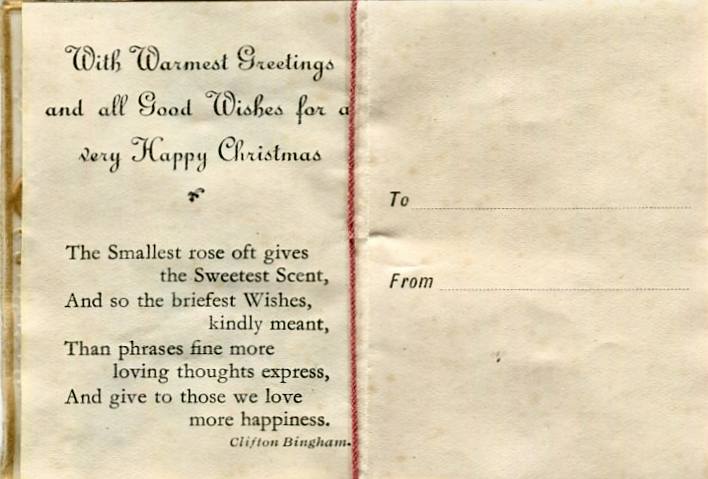 With Warmest Greetings
and all Good Wishes for a
very Happy Christmas
The Smallest rose oft gives
the Sweetest Scent,
And so the briefest Wishes,
kindly meant,
Than phrases fine more
loving thoughts express,
And give to those we love
more happiness.
Clifton Bingham.
To
From